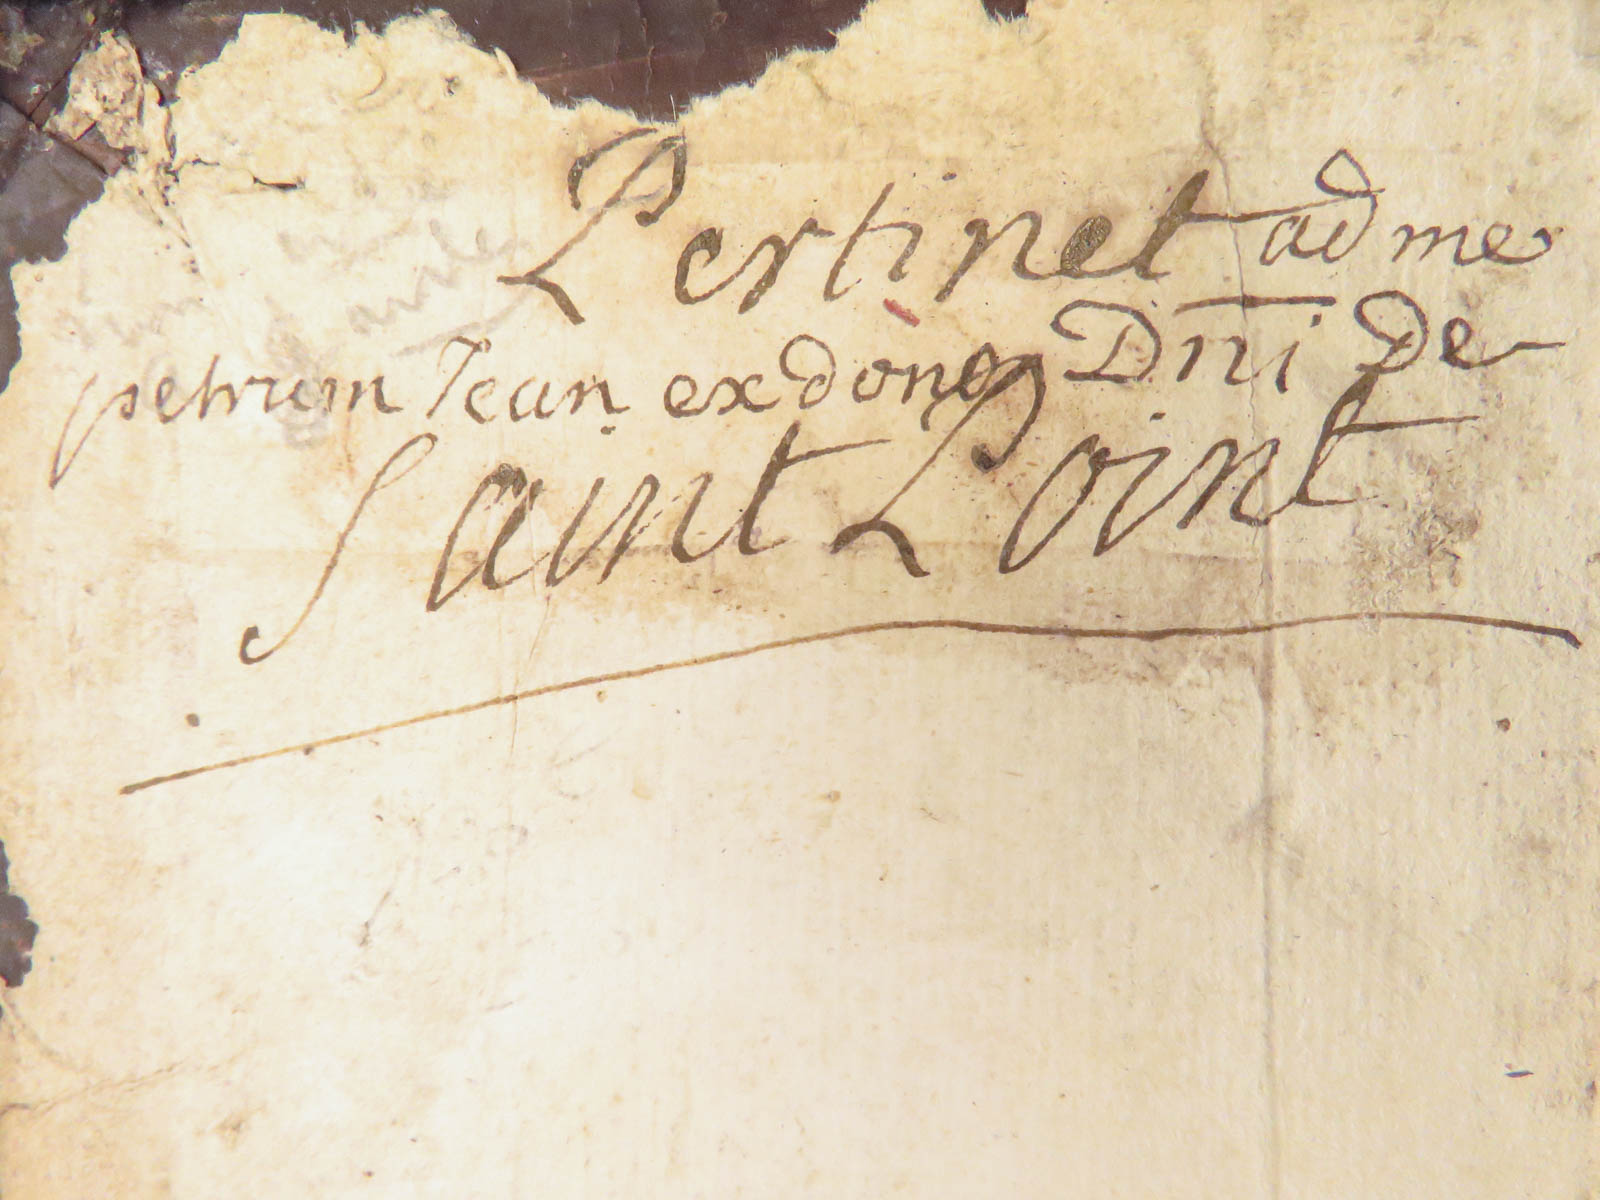 Pertinet ad me
petrum Jean ex dono Dn̄i de
Saint Point